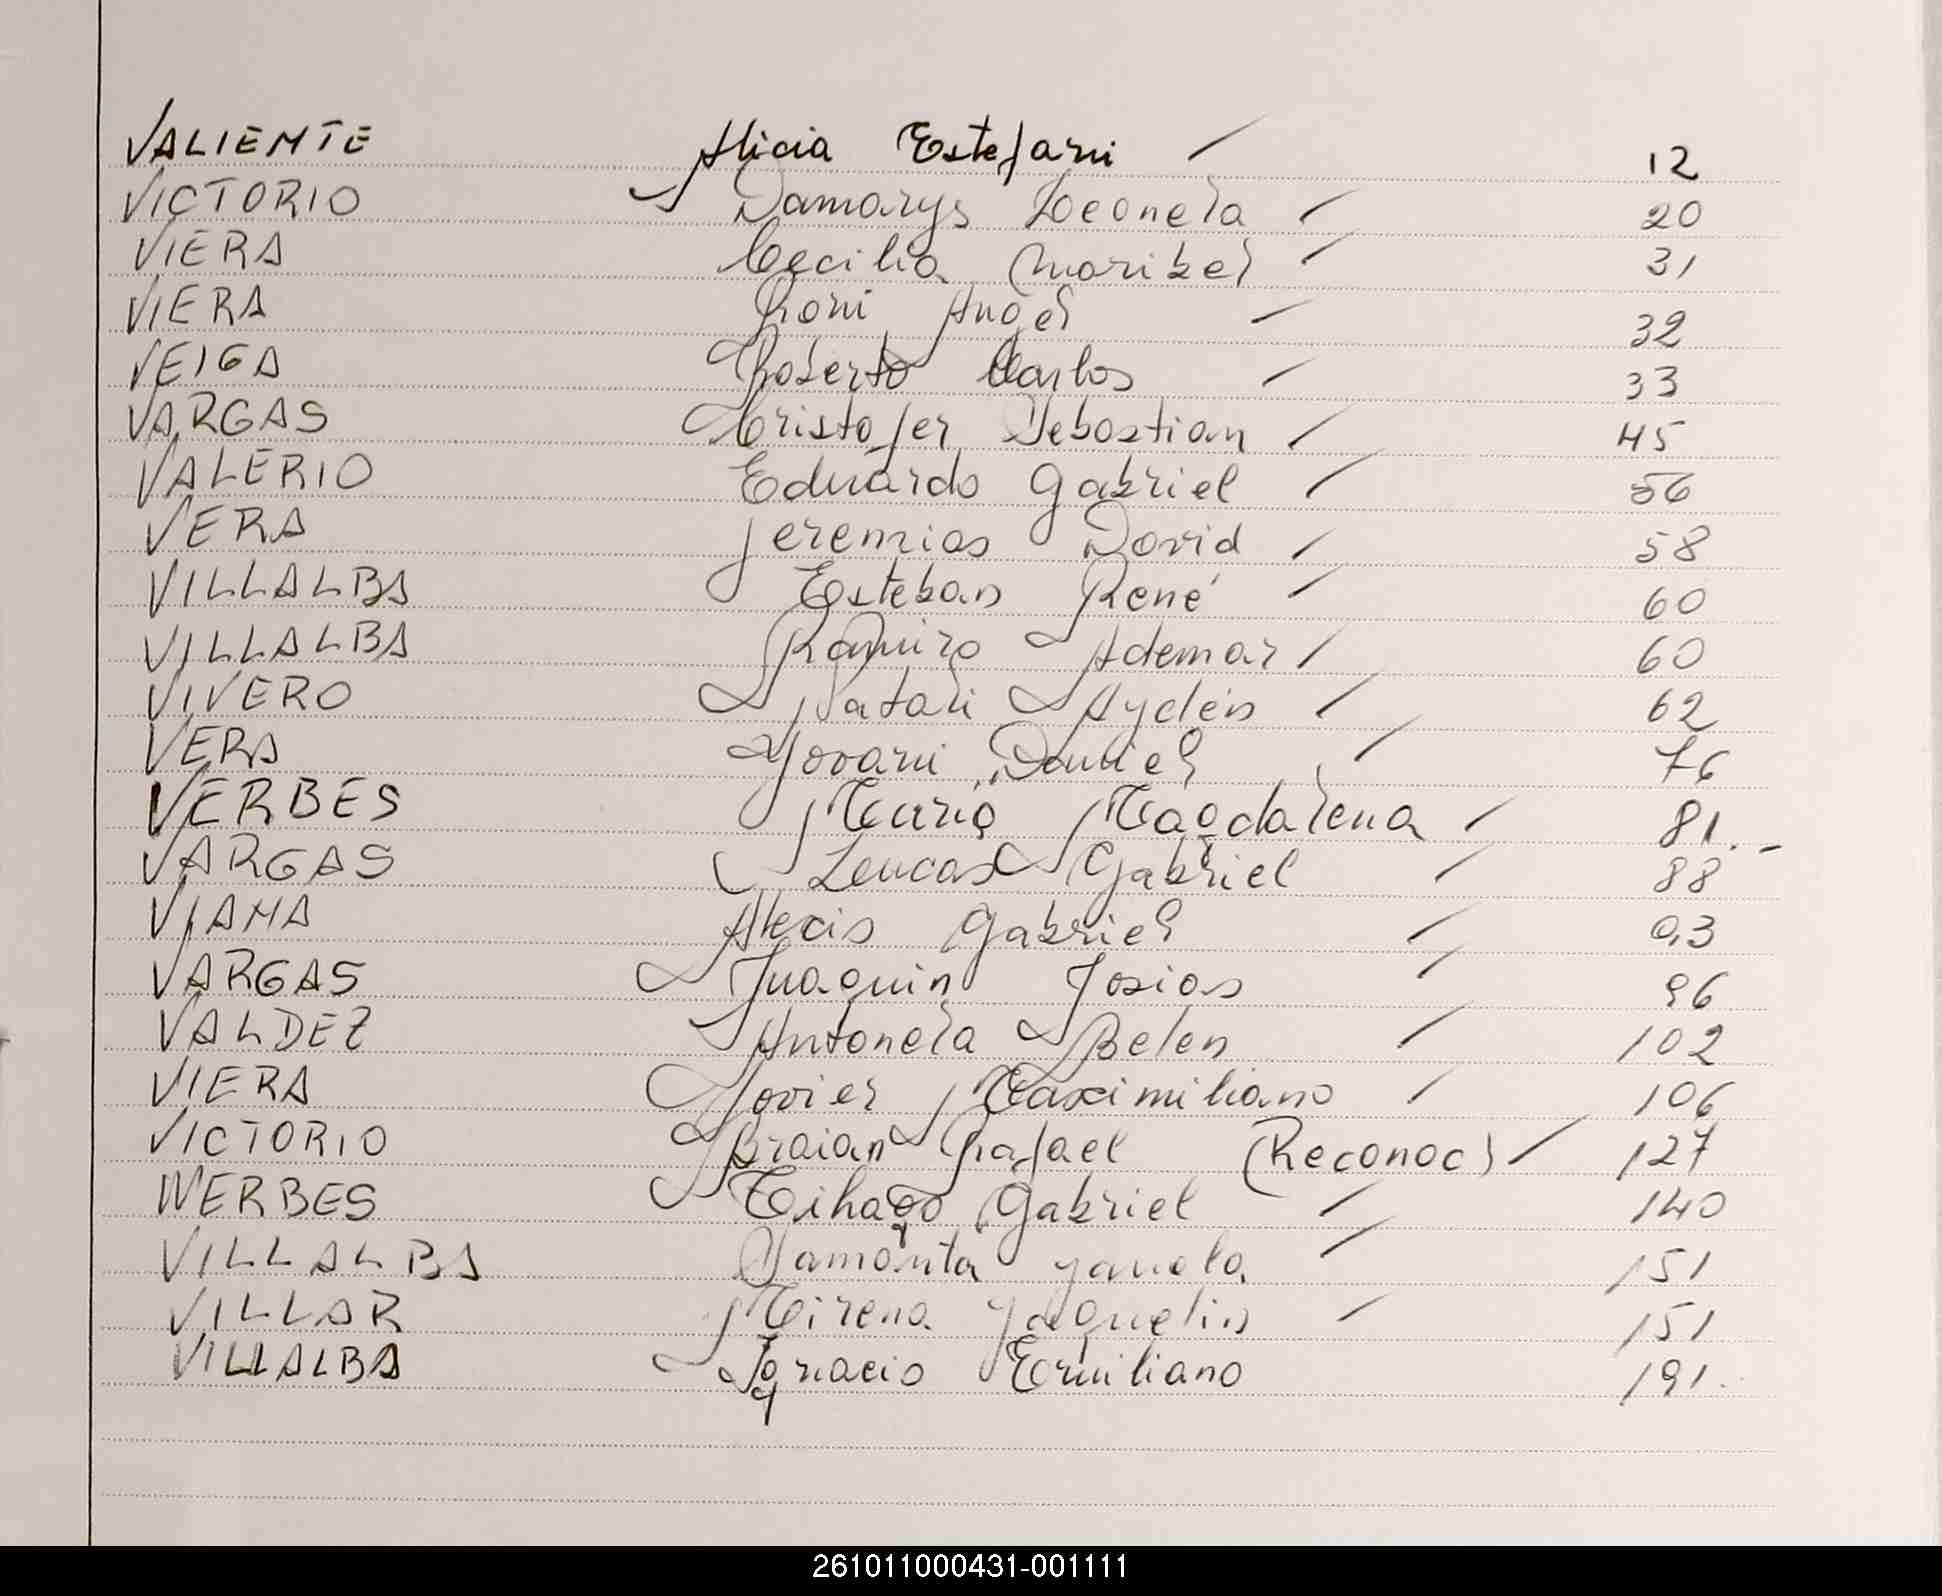 VALIENTE Alicia Estefani / 12
VICTORIO Damarys Leonela / 20
VIERA Cecilia Maribel / 31
VIERA Roni Angel / 32
VEIGA Roberto Carlos / 33
VARGAS Cristofer Sebastian / 45
VALERIO Eduardo Gabriel / 56
VERA Jeremias David / 58
VILLALBA Esteban René / 60
VILLALBA Ramiro Ademar / 60
VIVERO Natali Aylén / 62
VERA Yovani Daniel / 76
VERBES Maria Magdalena / 81.-
VARGAS Leucas Gabriel / 88
VIANA Alexis Gabriel / 93
VARGAS Juaquin Josias / 96
VALDEZ Antonela Belen / 102
VIERA Javier Maximiliano / 106
VICTORIO Braian Rafael (Reconoc) / 127
WERBES Tihago Gabriel / 140
VILLALBA Samanta / 151
VILLAR Mirena Yaquelin / 151
VILLALBA Ignacio Emiliano 191.
261011000431-001111